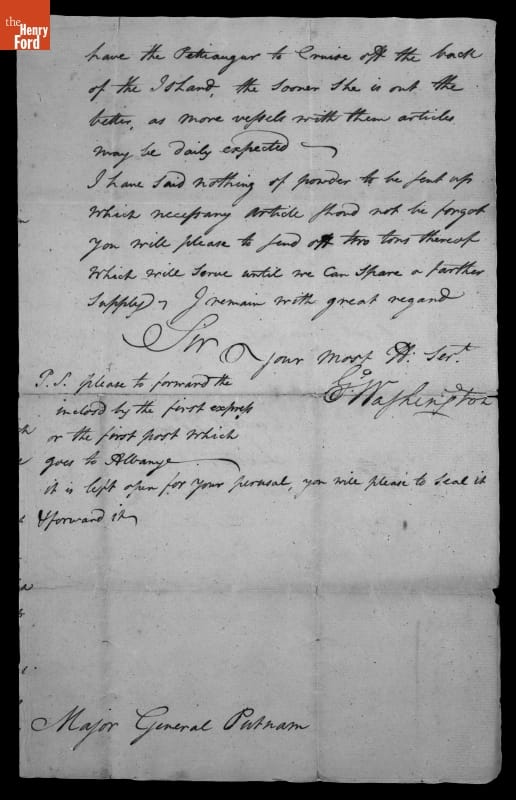 the
Henry
Ford
have the Pettiaugur to Cruise off the back
of the Island, the sooner she is out the
better, as more vessels with them articles
may be daily expected
I have said nothing of powder to be sent up
which necessary article shoud not be forgot
you will please to send off two tons thereof
which will serve until we can spare a farther
supply, I remain with great regard
Sir
your most H: Sert.
Go Washington
P.S. please to forward the
inclosd by the first express
or the first post which
goes to Albanye
it is left open for your perusal, you will please to seal it
& forward it
Major General Putnam